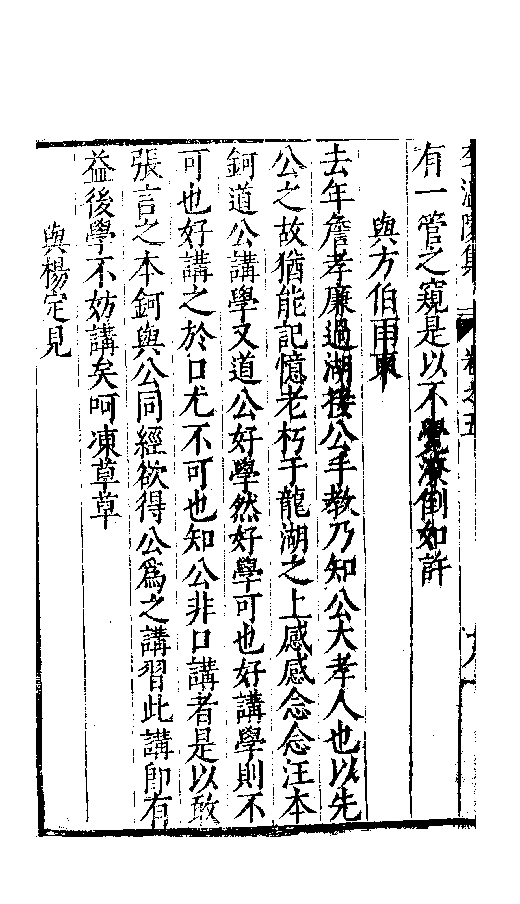 李温陵集 卷之五
有一管之窺是以不覺潦倒如許
與方伯雨柬
去年詹孝廉過湖接公手教乃知公大孝人也以先
公之故猶能記憶老朽于龍湖之上感感念念汪本
鈳道公講學又道公好學然好學可也好講學則不
可也好講之於口尤不可也知公非口講者是以敢
張言之本鈳與公同經欲得公爲之講習此講卽有
益後學不妨講矣呵凍草草
與楊定見